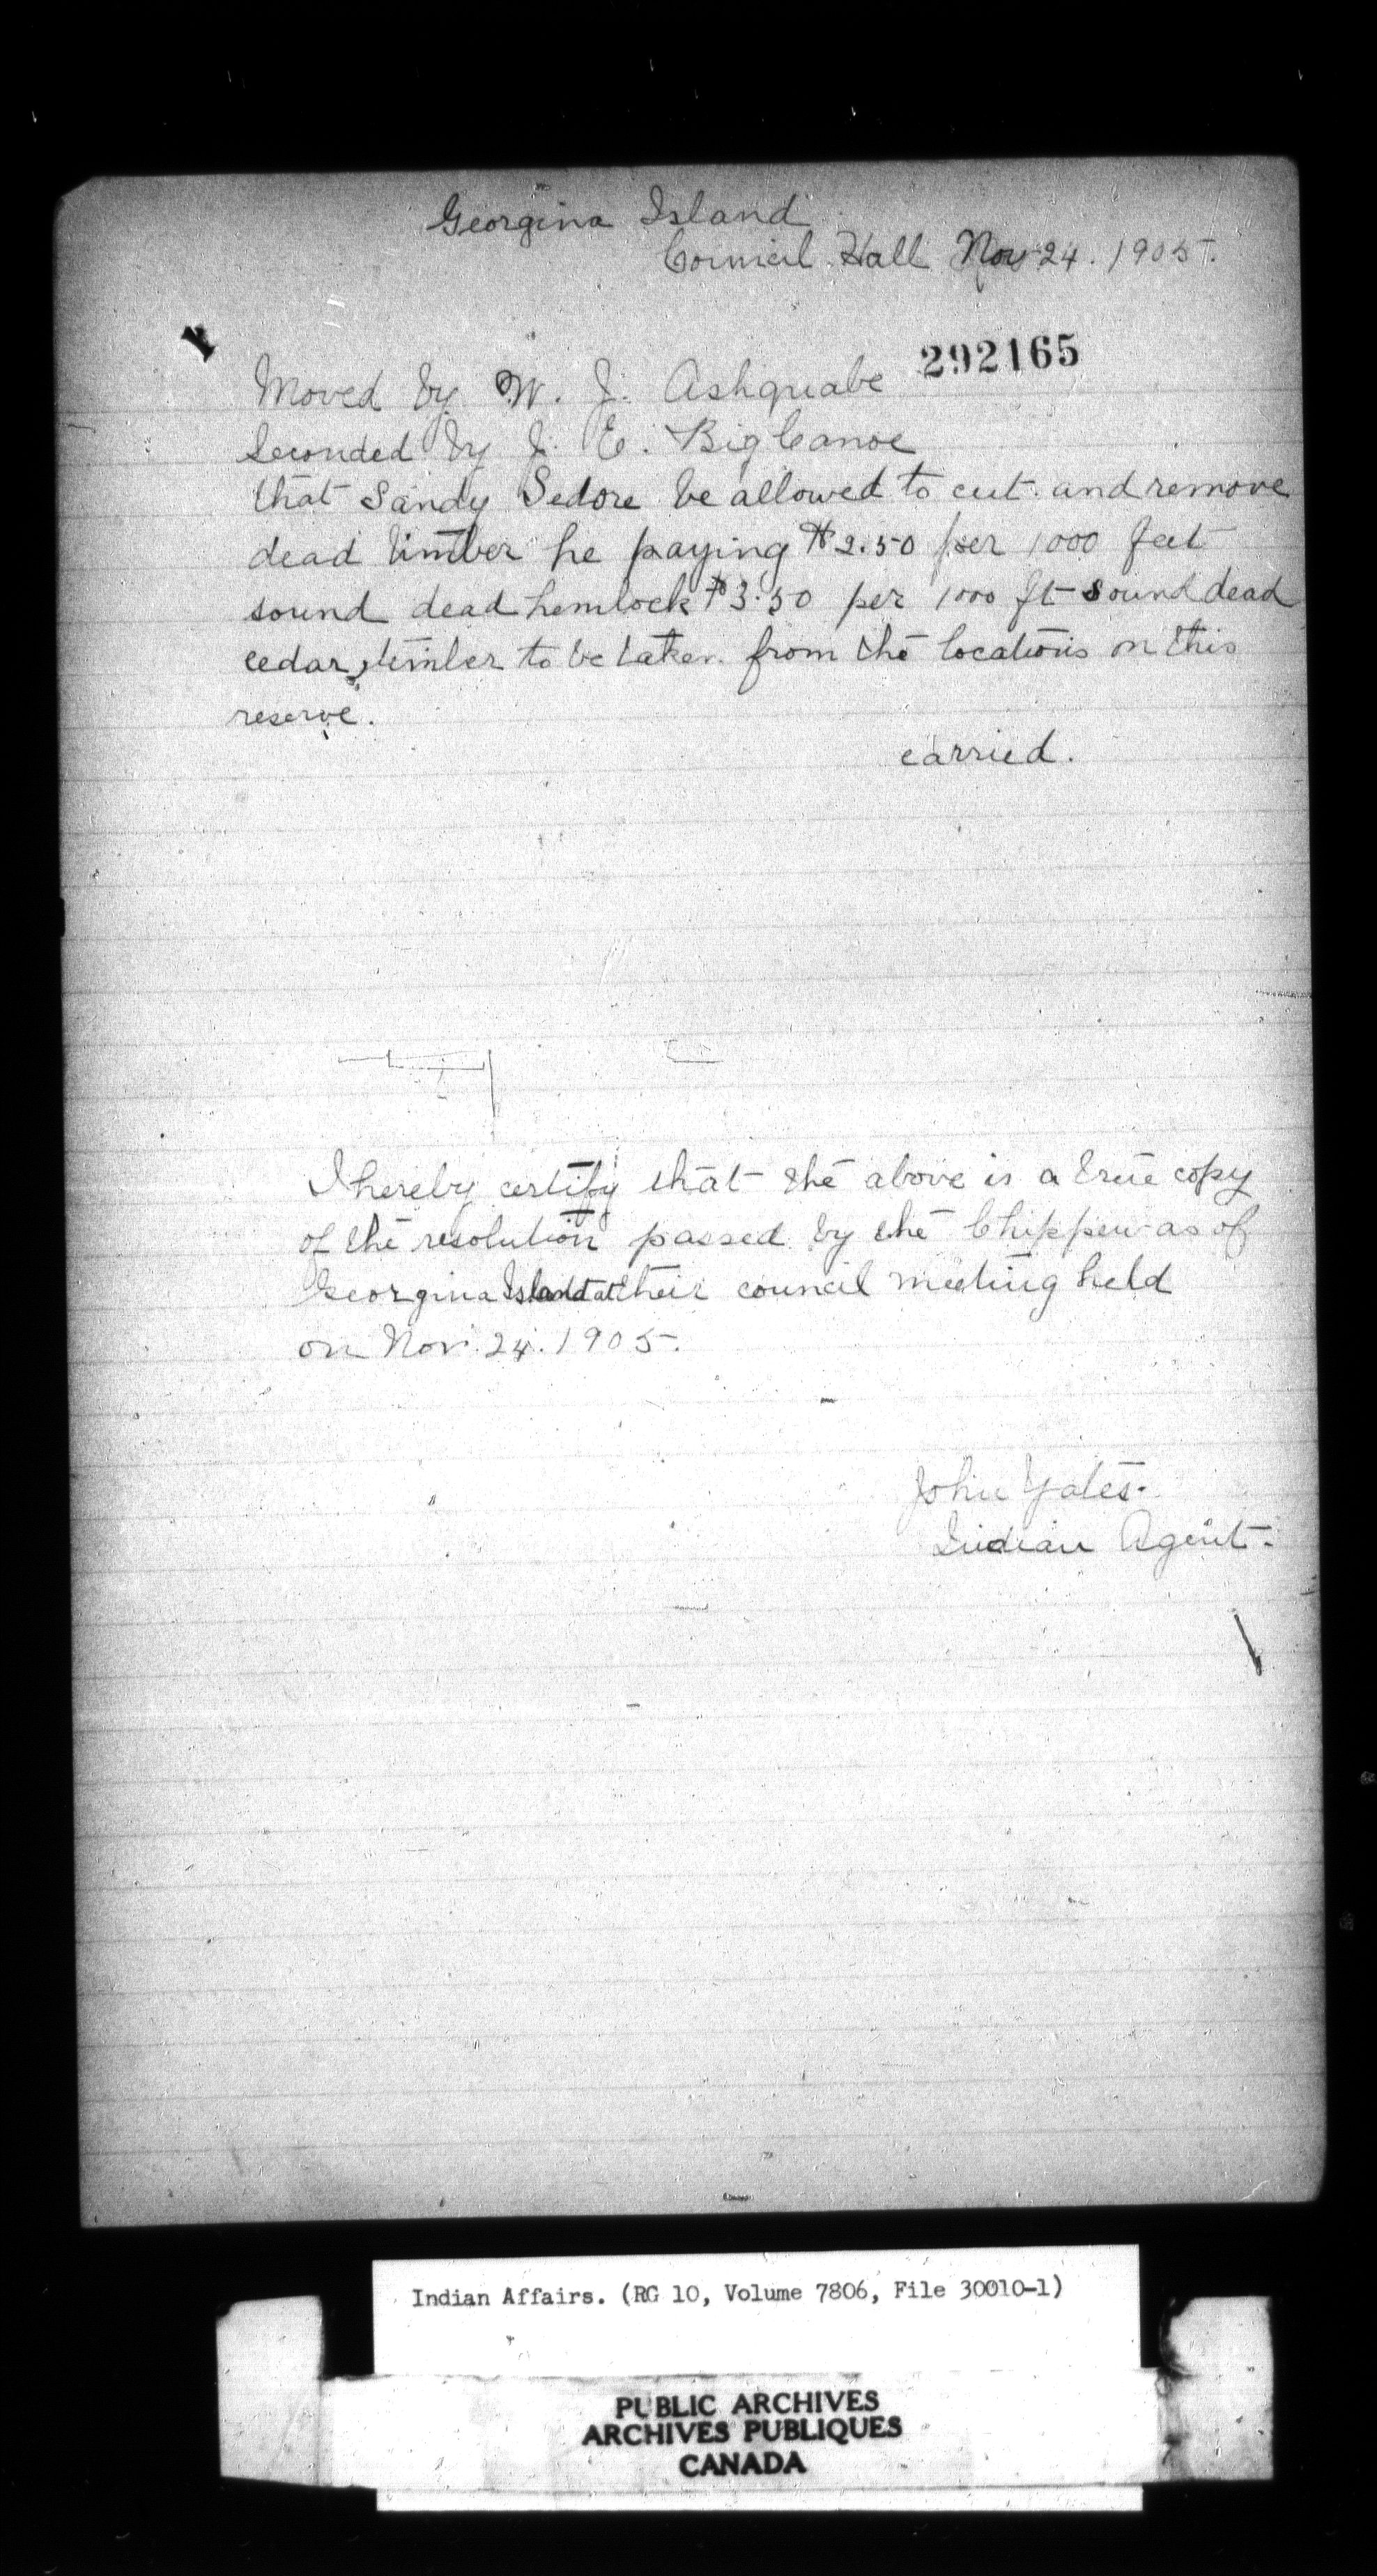 Georgina Island
Council Hall Nov 24. 1905.
292165
Moved by W. J. Ashquabe
Seconded by J. E. Big Canoe
that Sandy Sedore be allowed to cut and remove
dead timber he paying $2.50 per 1000 feet
sound dead hemlock $3.50 per 1000 ft sound dead
cedar, timber to be taken from the locations on this
reserve.
carried.
I hereby certify that the above is a true copy
of the resolution passed by the Chippewas of
Georgina Island at their council meeting held
on Nov. 24. 1905.
John Yates.
Indian Agent.
Indian Affairs. (RG 10, Volume 7806, File 30010-1)
PUBLIC ARCHIVES
ARCHIVES PUBLIQUES
CANADA